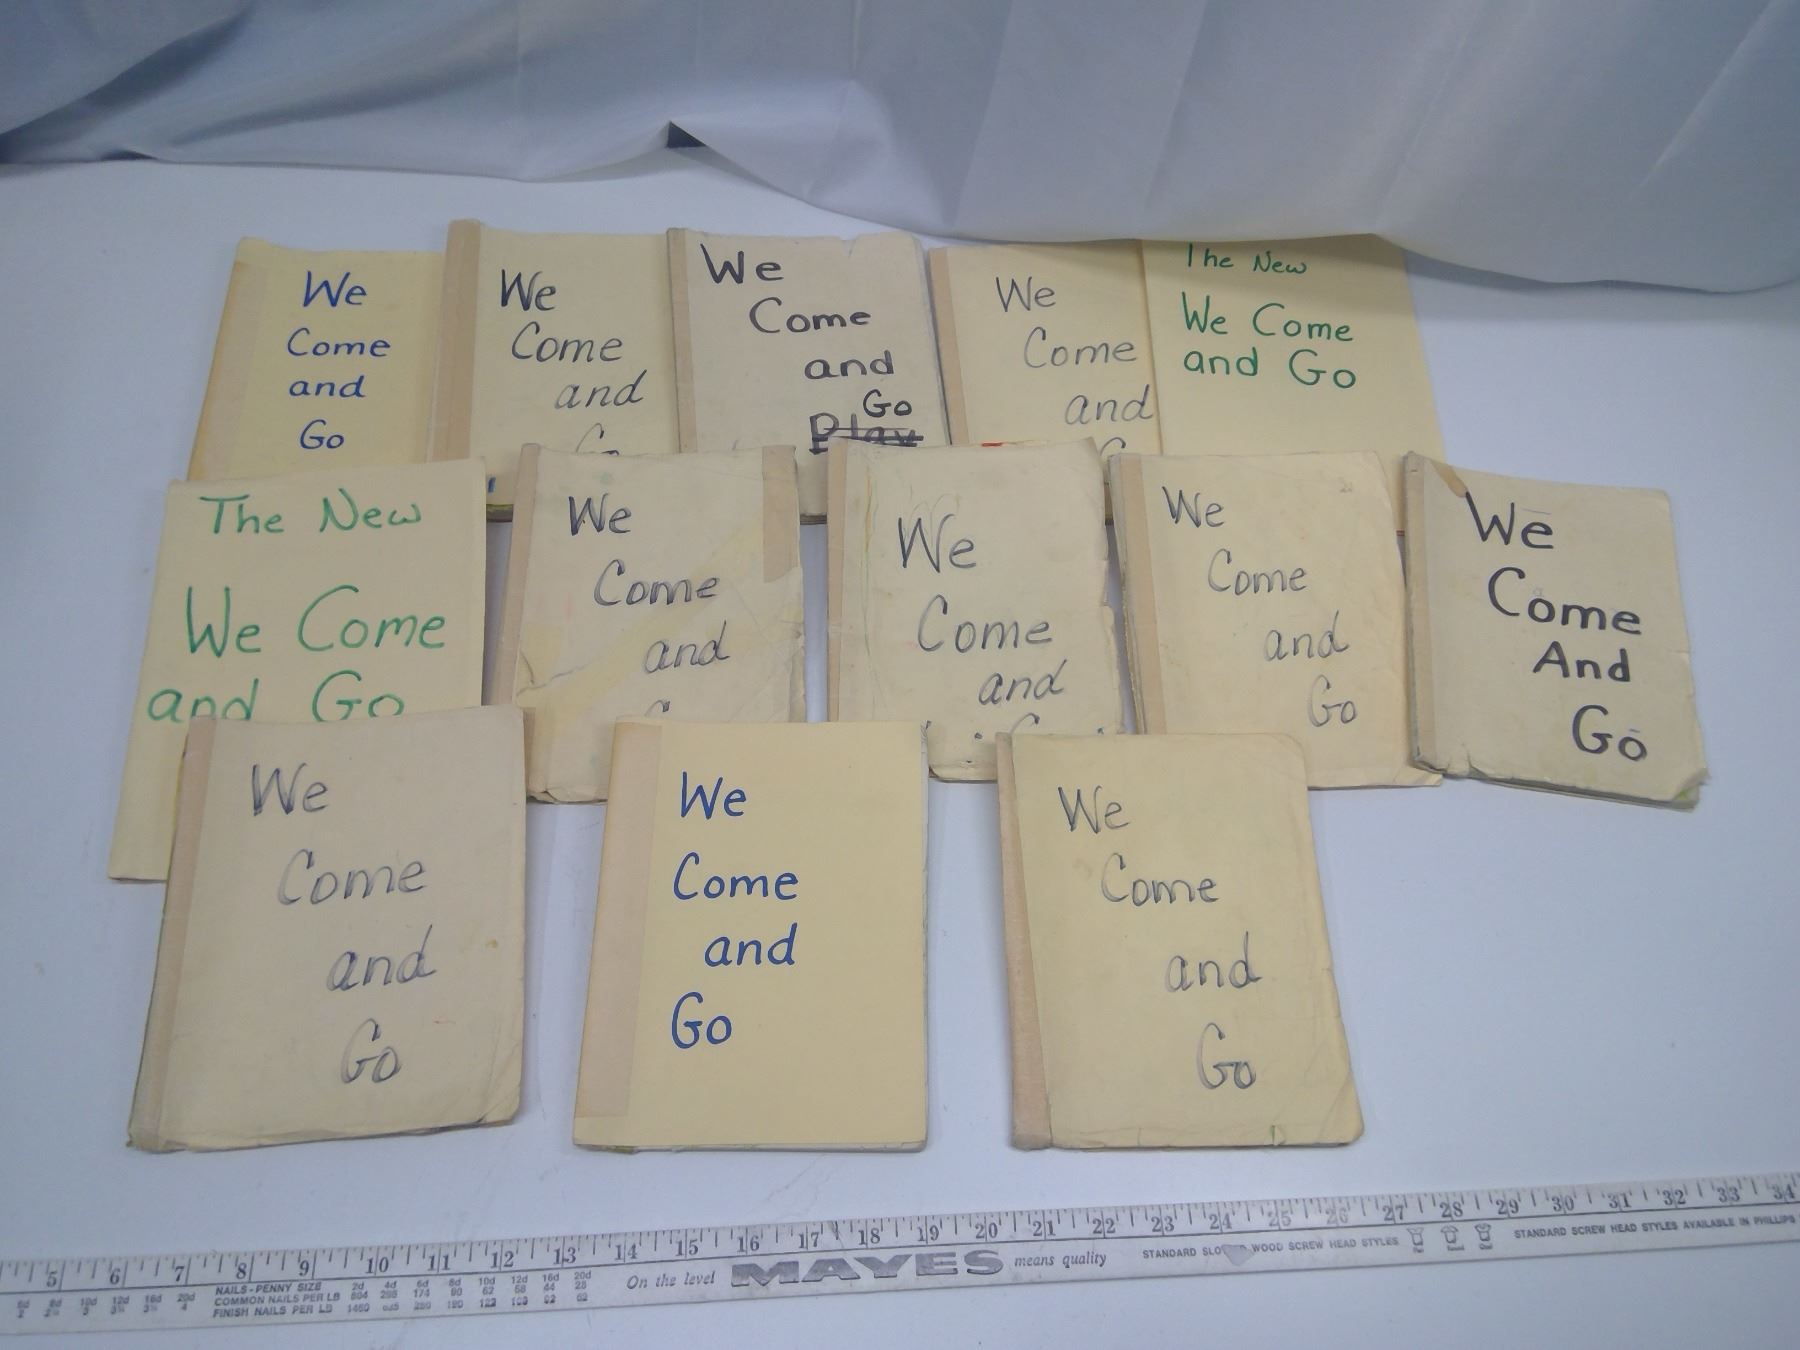 We
Come
and
Go
We
Come
and
Go
We
Come
and
Go
Play
We
Come
and
The New
We Come
and Go
The New
We Come
and Go
We
Come
and
We
Come
and
We
Come
and
Go
We
Come
And
Go
We
Come
and
Go
We
Come
and
Go
We
Come
and
Go
5 6 7 8 9 10 11 12 13 14 15 16 17 18 19 20 21 22 23 24 25 26 27 28 29 30 31 32 33 34
NAILS-PENNY SIZE 2d 4d 6d 8d 10d 12d 16d 20d
COMMON NAILS PER LB
FINISH NAILS PER LB
On the level MAYES means quality
WOOD SCREW HEAD STYLES
STANDARD SCREW HEAD STYLES AVAILABLE IN PHILLIPS